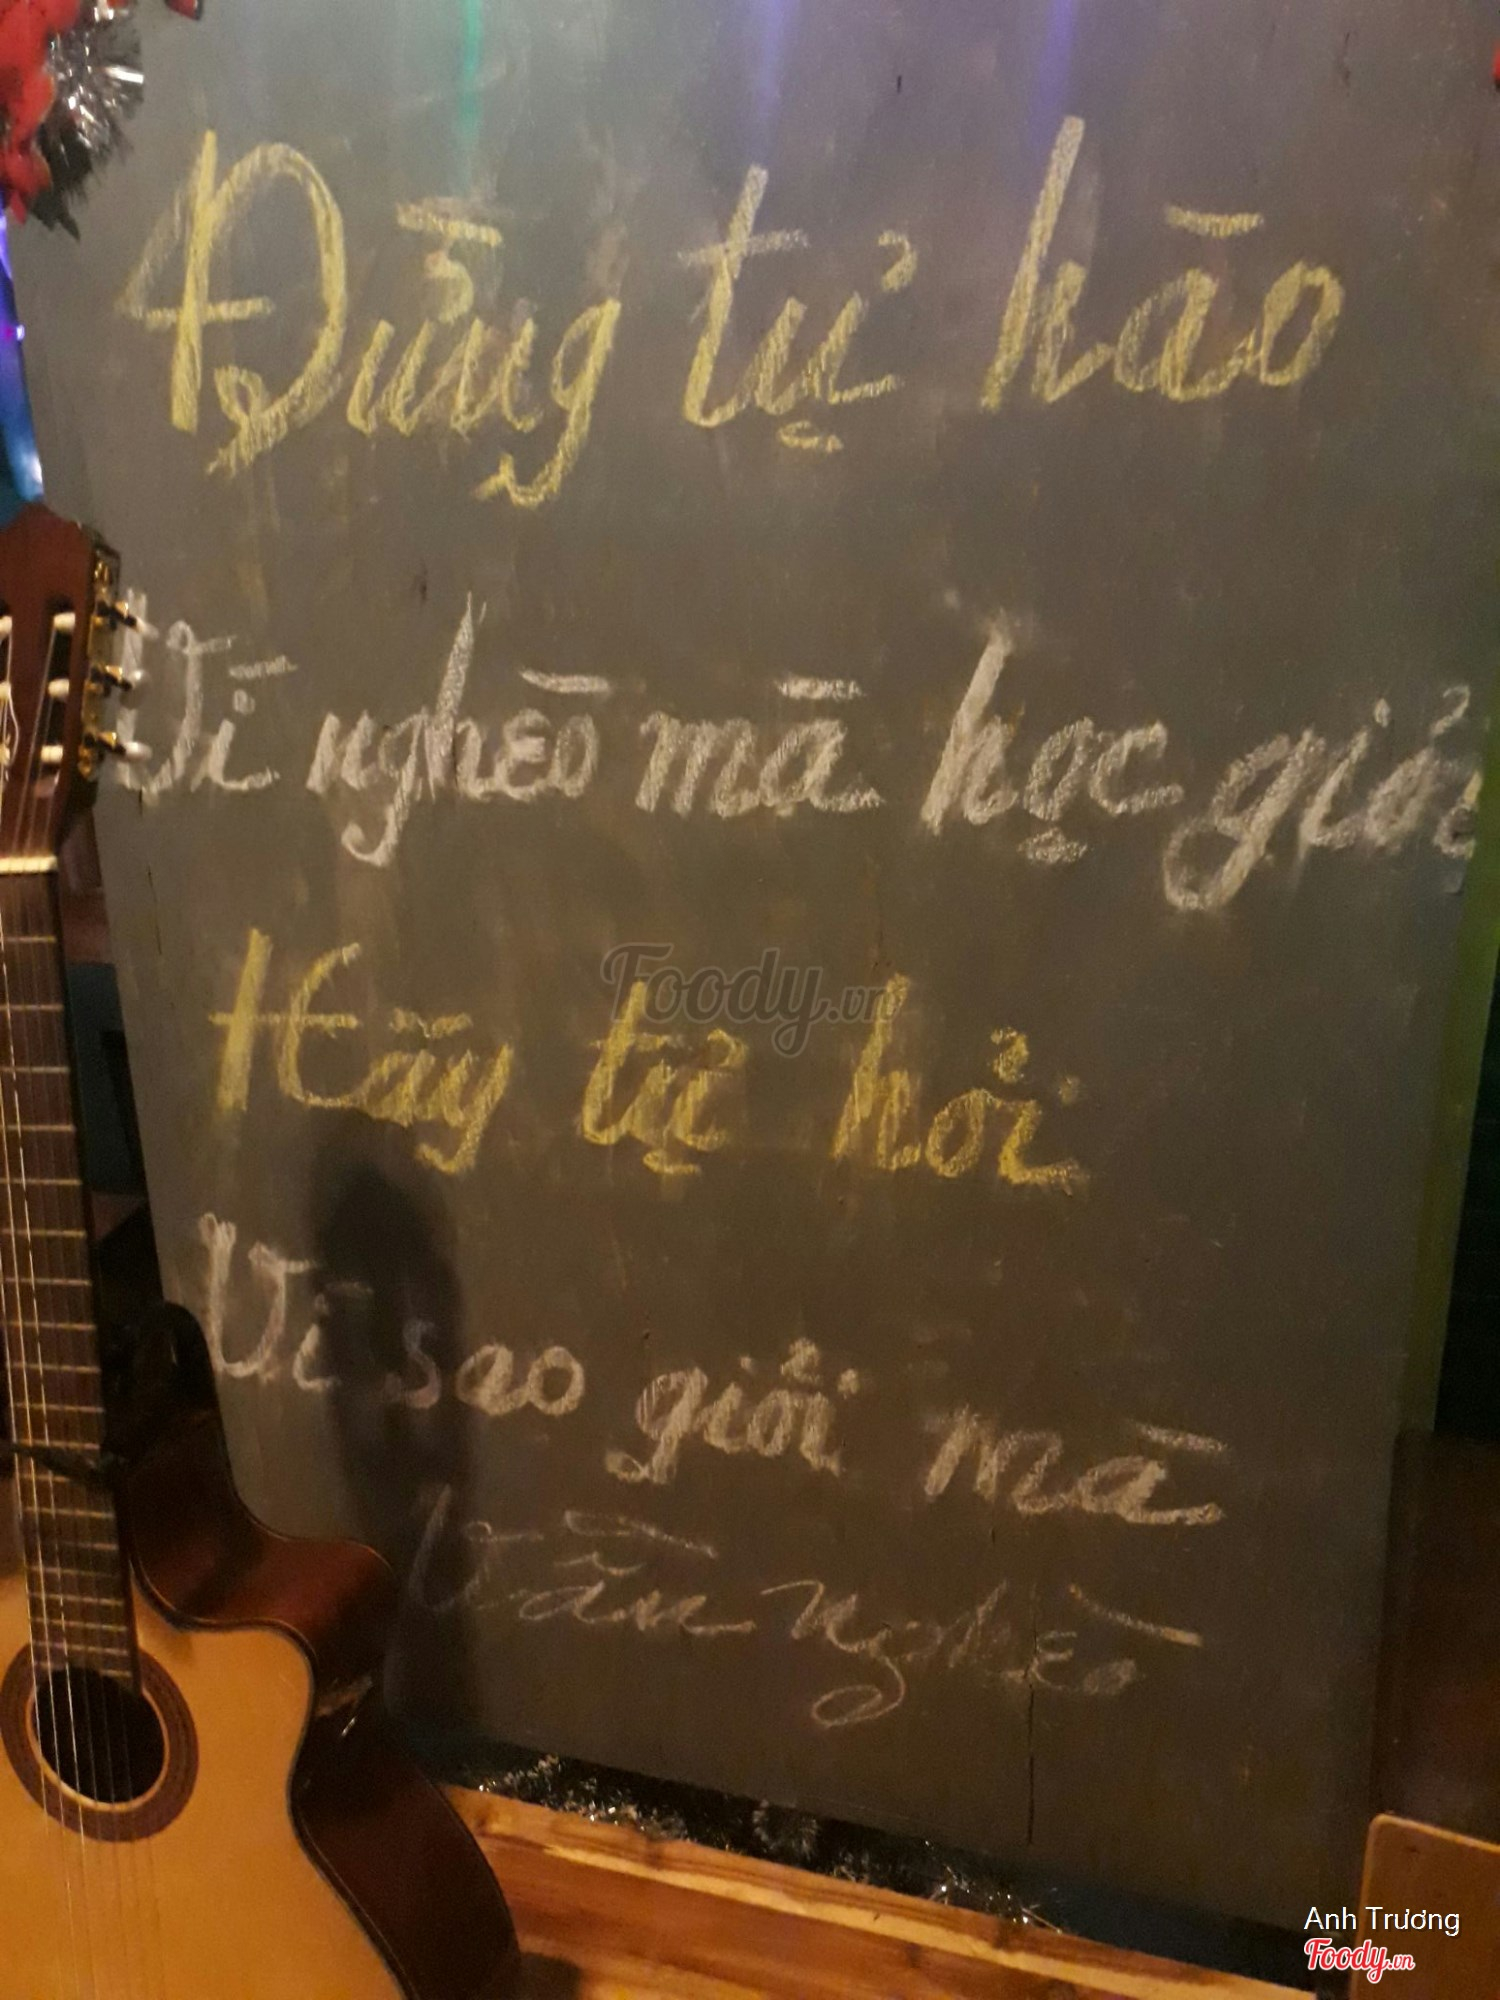 Đừng tự hào
Vì nghèo mà học giỏi
Hãy tự hỏi
Foody.vn
Vì sao giỏi mà
Vẫn nghèo
Anh Trương
Foody.vn